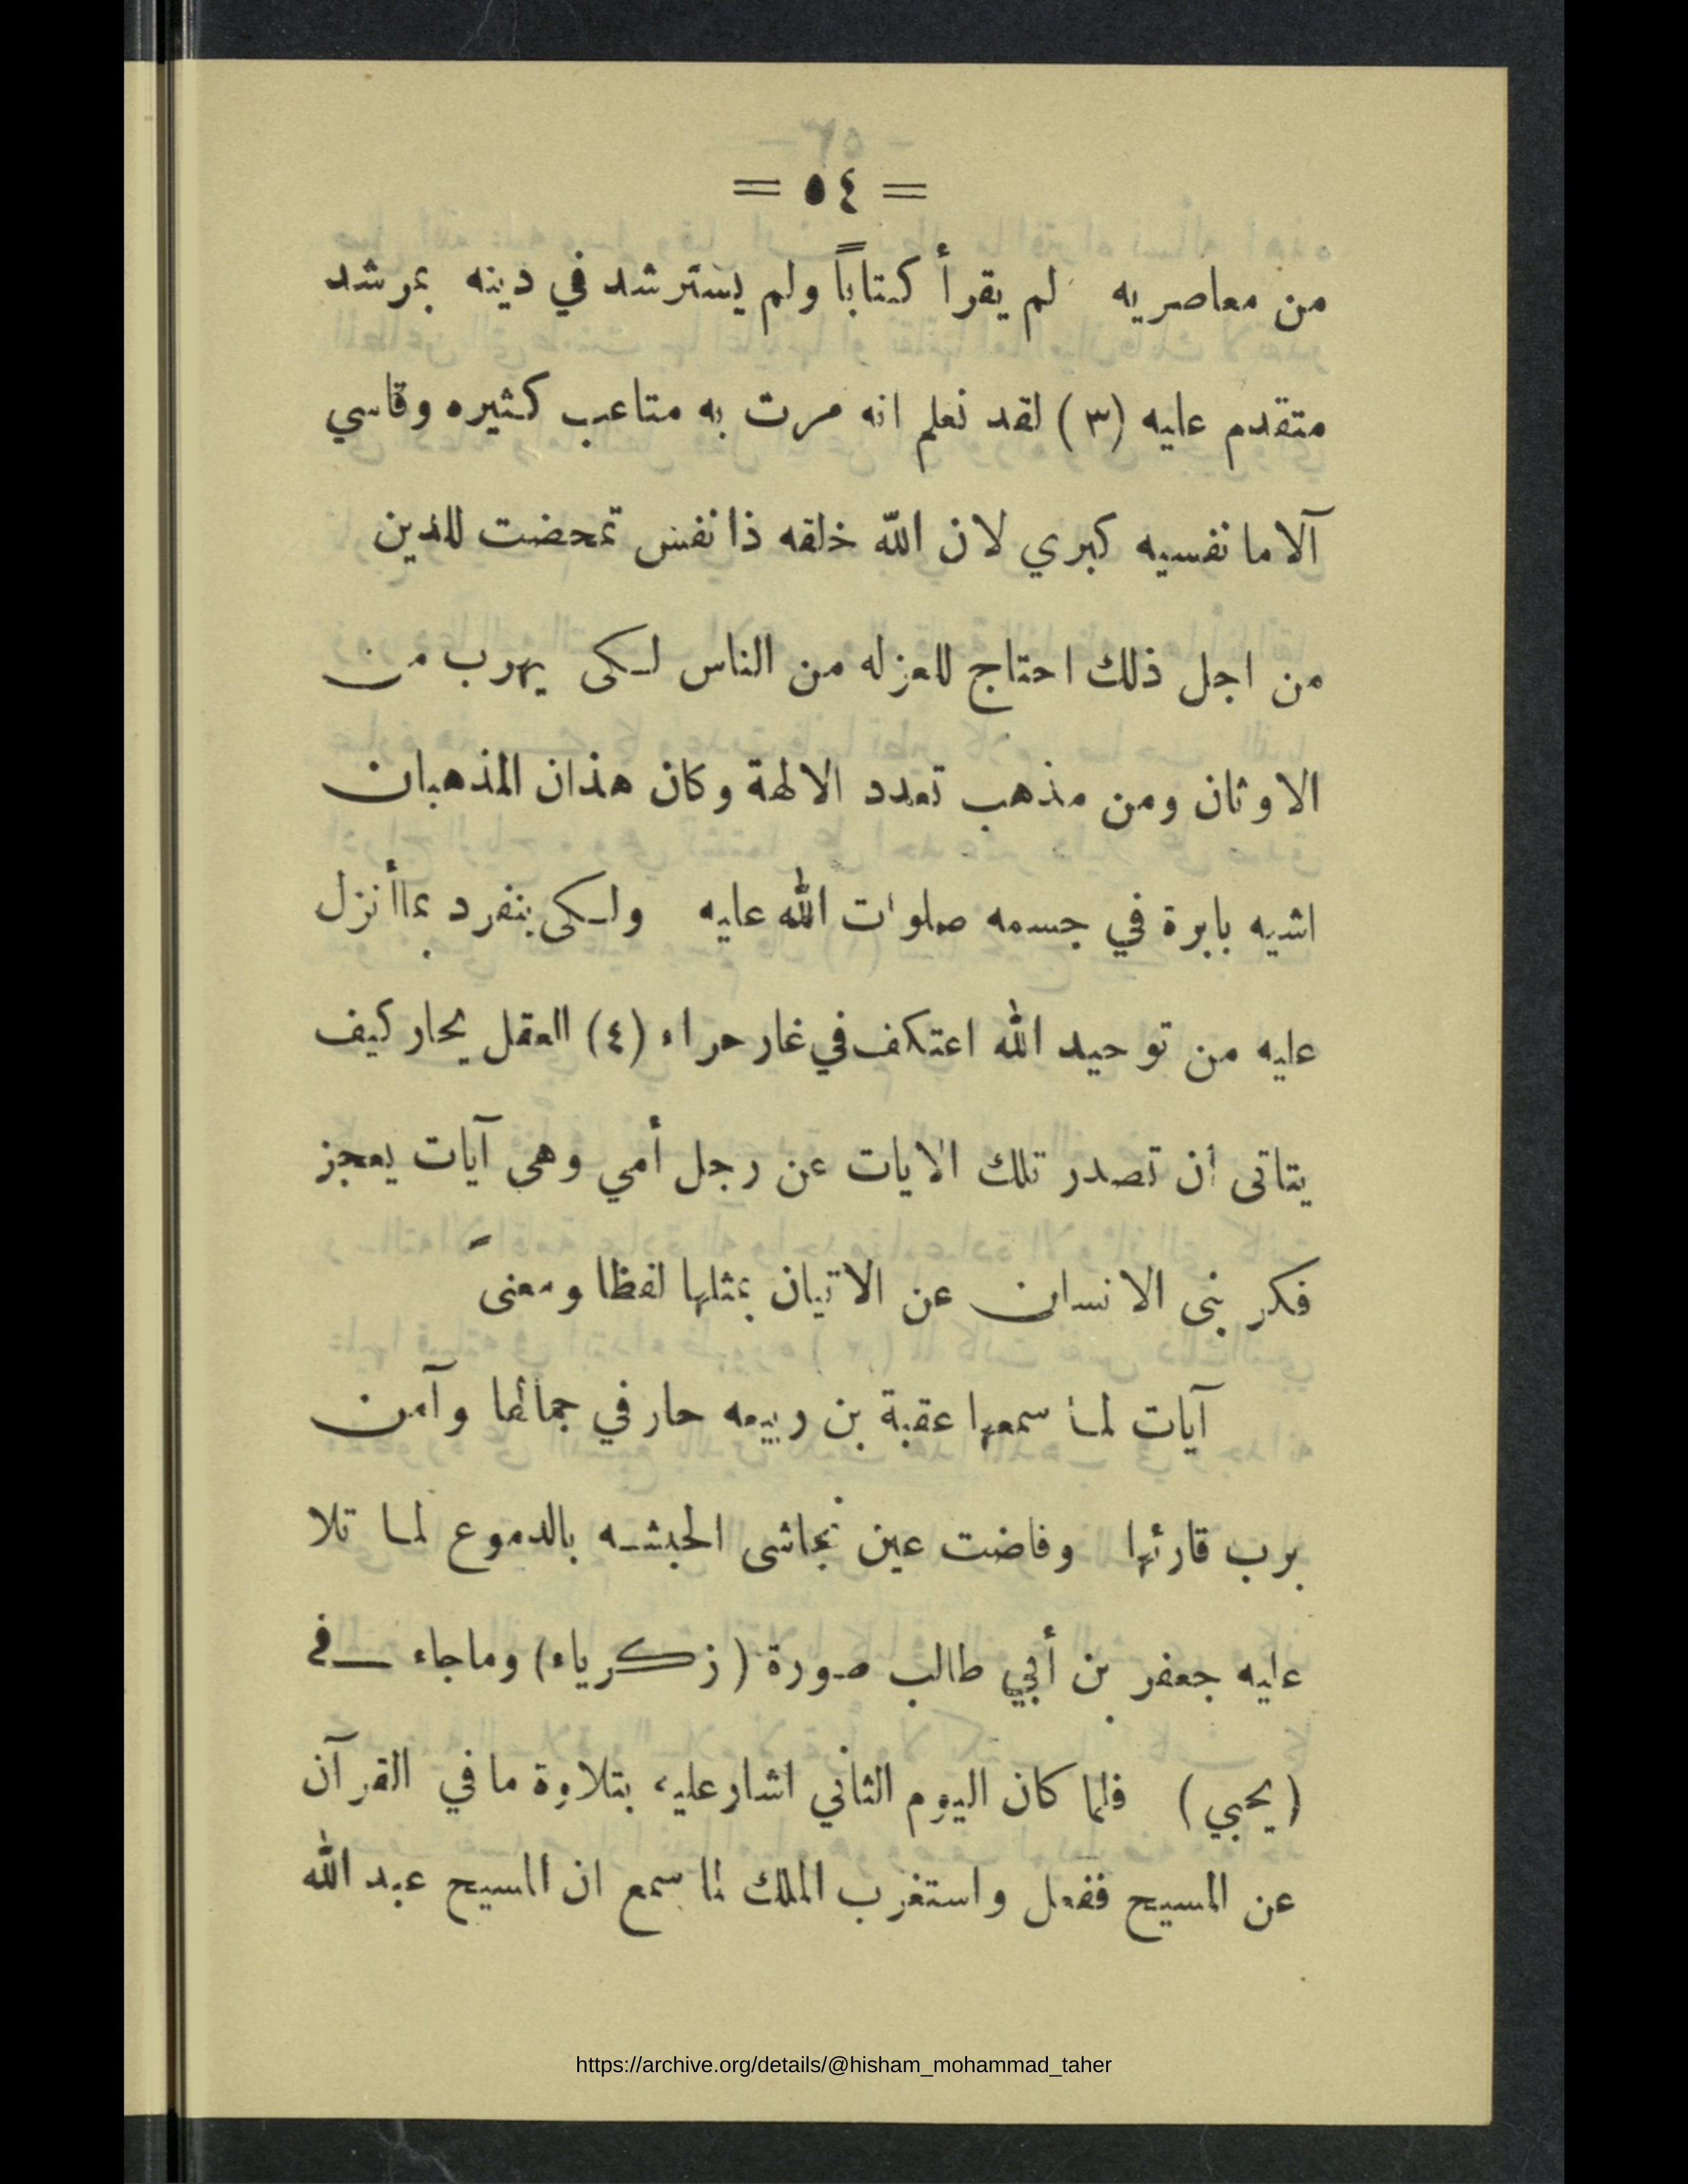 = ٥٤ =
من معاصريه لم يقرأ كتاباً ولم يسترشد في دينه بمرشد
متقدم عليه (٣) لقد نعلم انه مرت به متاعب كثيره وقاسي
آلاما نفسيه كبري لان الله خلقه ذا نفس تمحضت للدين
من اجل ذلك احتاج للعزله من الناس لكى يهرب من
الاوثان ومن مذهب تعدد الالهة وكان هذان المذهبان
اشيه بابرة في جسمه صلوات الله عليه ولكى ينفرد بما أنزل
عليه من توحيد الله اعتكف في غار حراء (٤) العقل يحار كيف
يتاتى ان تصدر تلك الايات عن رجل أمي وهى آيات يعجز
فكر بنى الانسان عن الاتيان بمثلها لفظا ومعنىً
آيات لما سمعها عقبة بن ربيعه حار في جمالها وآمن
برب قارئها وفاضت عين نجاشى الحبشه بالدموع لما تلا
عليه جعفر بن أبي طالب صورة (زكرياء) وماجاء في
(يحيي) فلما كان اليوم الثاني اشار عليه بتلاوة ما في القرآن
عن المسيح ففعل واستغرب الملك لما سمع ان المسيح عبد الله
https://archive.org/details/@hisham_mohammad_taher